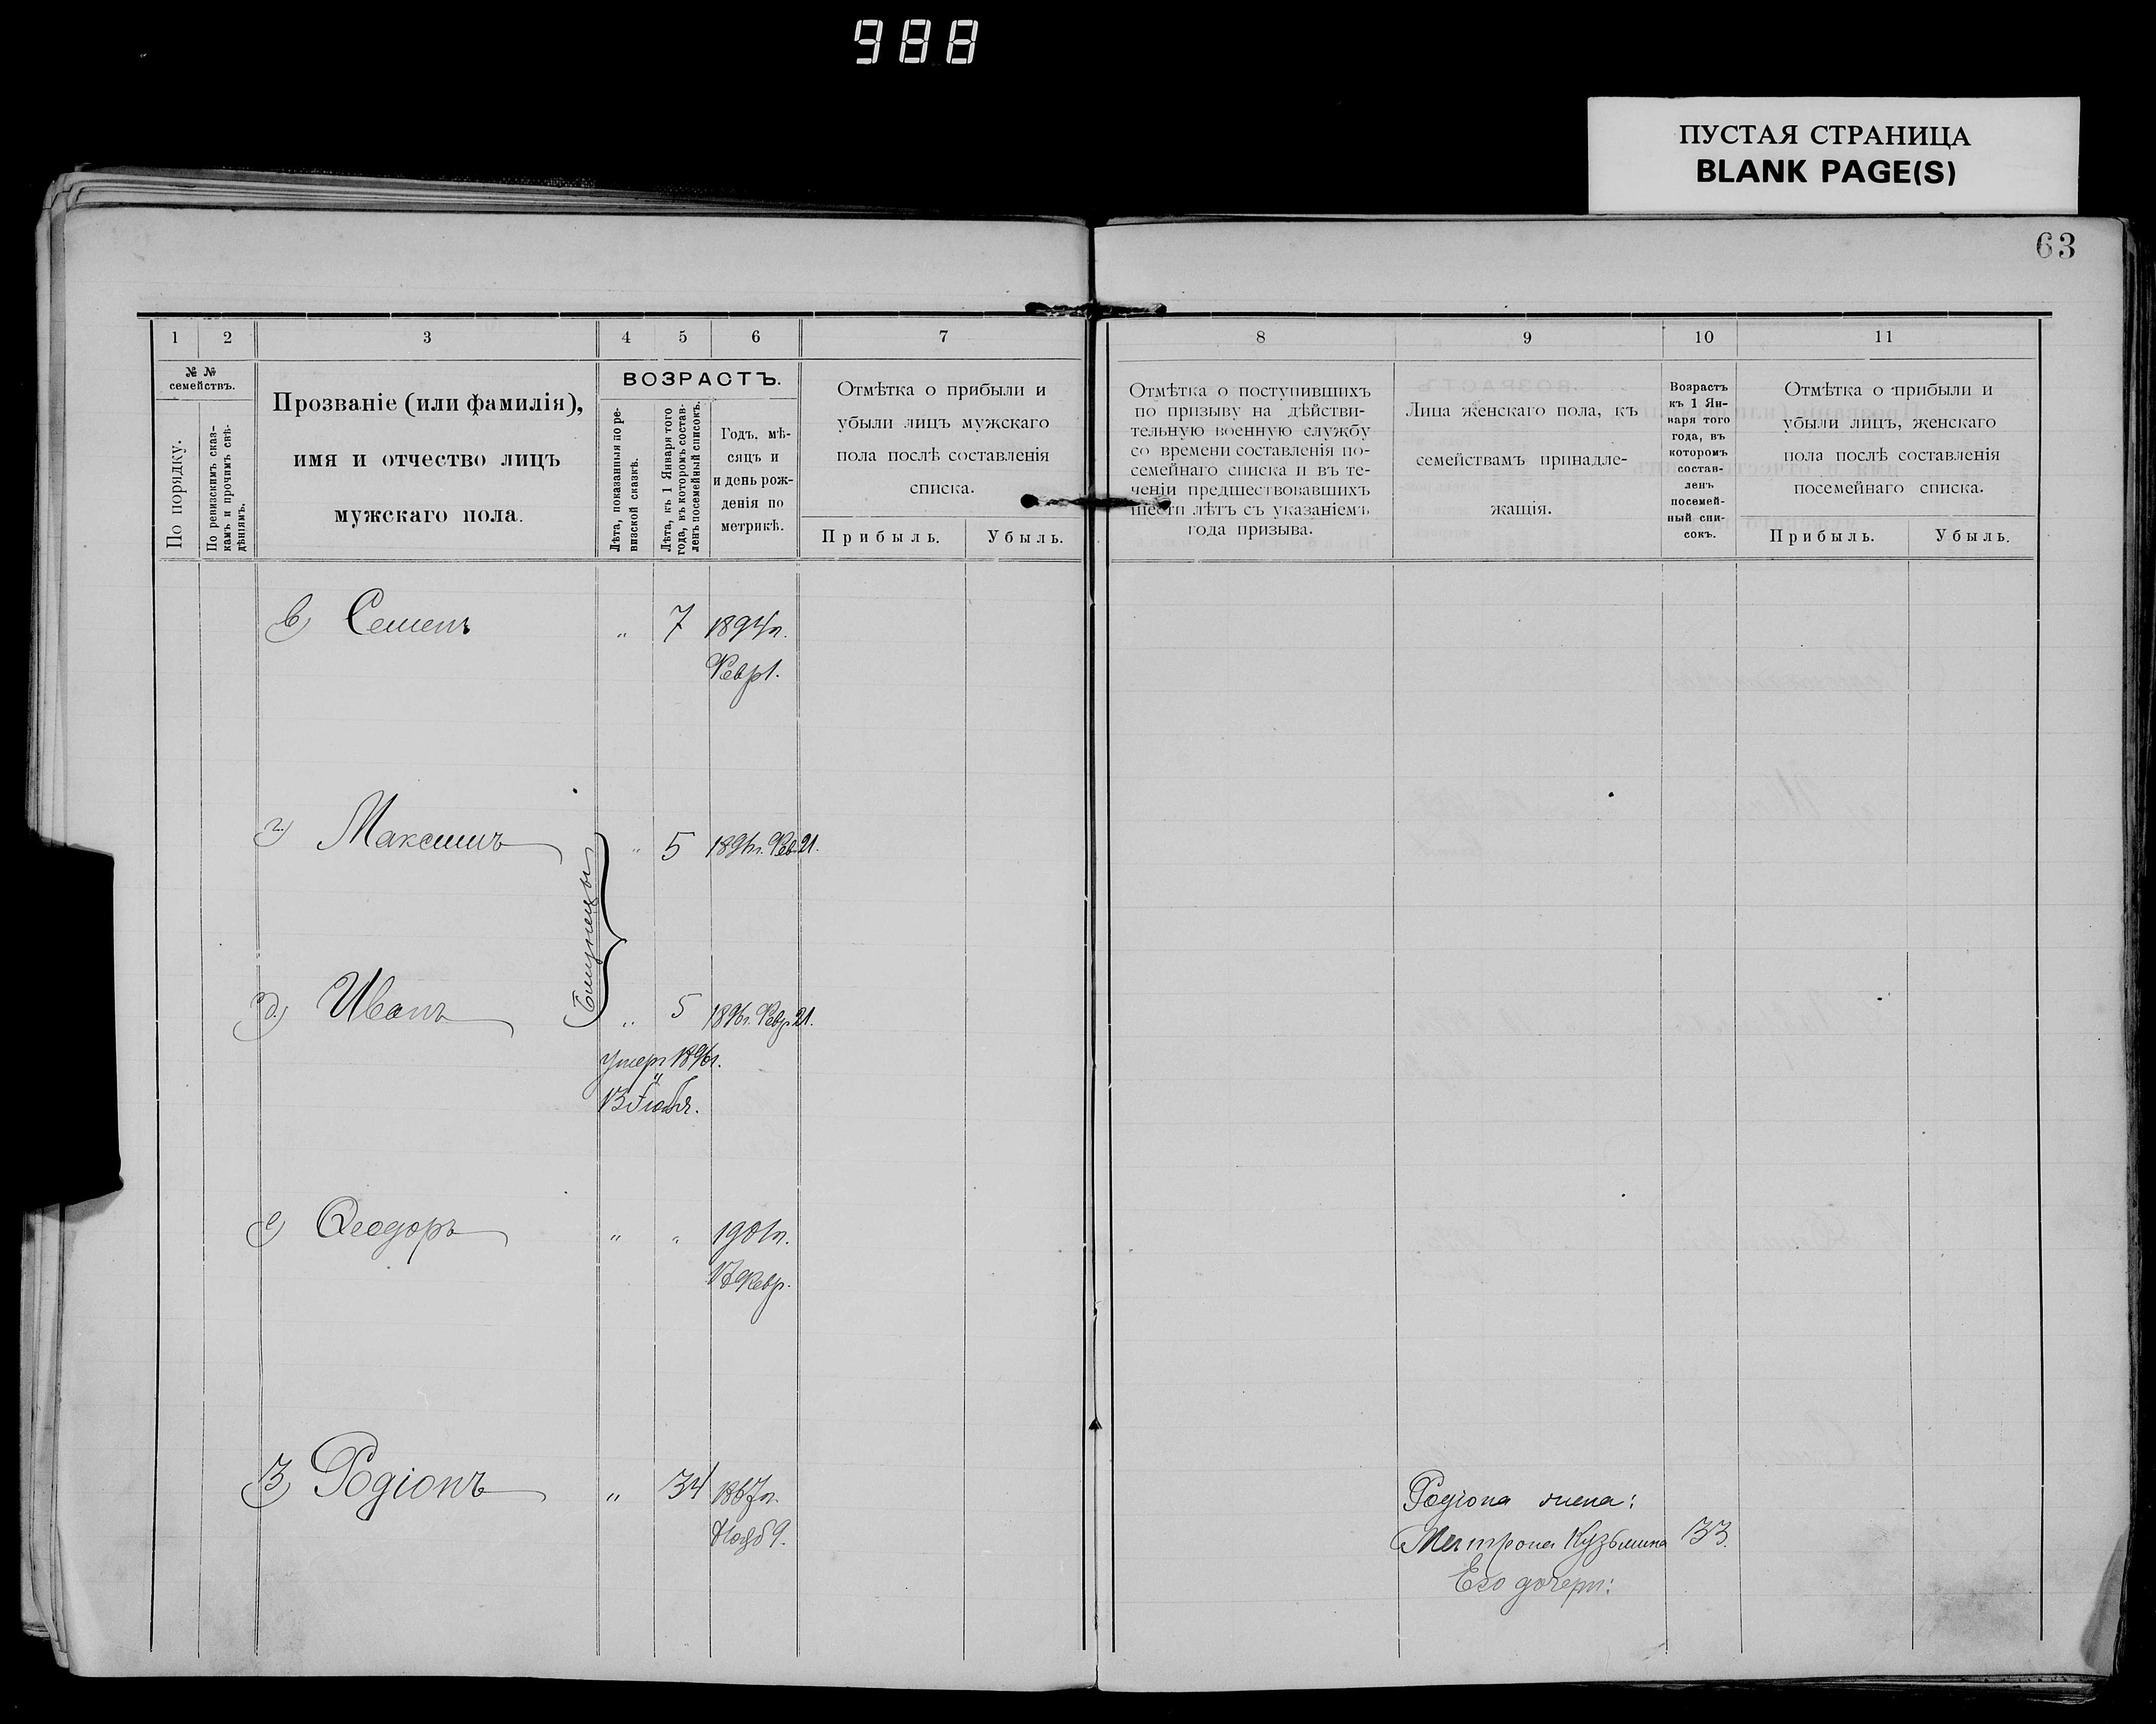 988
ПУСТАЯ СТРАНИЦА
BLANK PAGE(S)
63
1 2 3 4 5 6 7
№ №
семействъ.
По порядку.
По ревизскимъ сказ-
камъ и прочимъ свѣ-
дѣніямъ.
Прозваніе (или фамилія),
имя и отчество лицъ
мужскаго пола.
ВОЗРАСТЪ.
Лѣта, показанныя по ре-
визской сказкѣ.
Лѣта, къ 1 Января того
года, въ которомъ состав-
ленъ посемейный списокъ.
Годъ, мѣ-
сяцъ и
и день рож-
денія по
метрикѣ.
Отмѣтка о прибыли и
убыли лицъ мужскаго
пола послѣ составленія
списка.
Прибыль. Убыль.
в) Семенъ " 7 1894г.
Февр 1.
г) Максимъ " 5 1896г. Фев 21.
Близнецы
д) Иванъ " 5 1896г. Февр 21.
умеръ 1896г.
13 Іюня.
е) Ѳеодоръ " " 1901г.
17 Февр.
3) Родіонъ " 34 1867г.
Нояб 9.
8 9 10 11
Отмѣтка о поступившихъ
по призыву на дѣйстви-
тельную военную службу
со времени составленія по-
семейнаго списка и въ те-
ченіи предшествовавшихъ
шести лѣтъ съ указаніемъ
года призыва.
Лица женскаго пола, къ
семействамъ принадле-
жащія.
Возрастъ
къ 1 Ян-
варя того
года, въ
которомъ
состав-
ленъ
посемей-
ный спи-
сокъ.
Отмѣтка о прибыли и
убыли лицъ, женскаго
пола послѣ составленія
посемейнаго списка.
Прибыль. Убыль.
Родіона жена:
Матрона Кузьмина 33.
Его дочери: